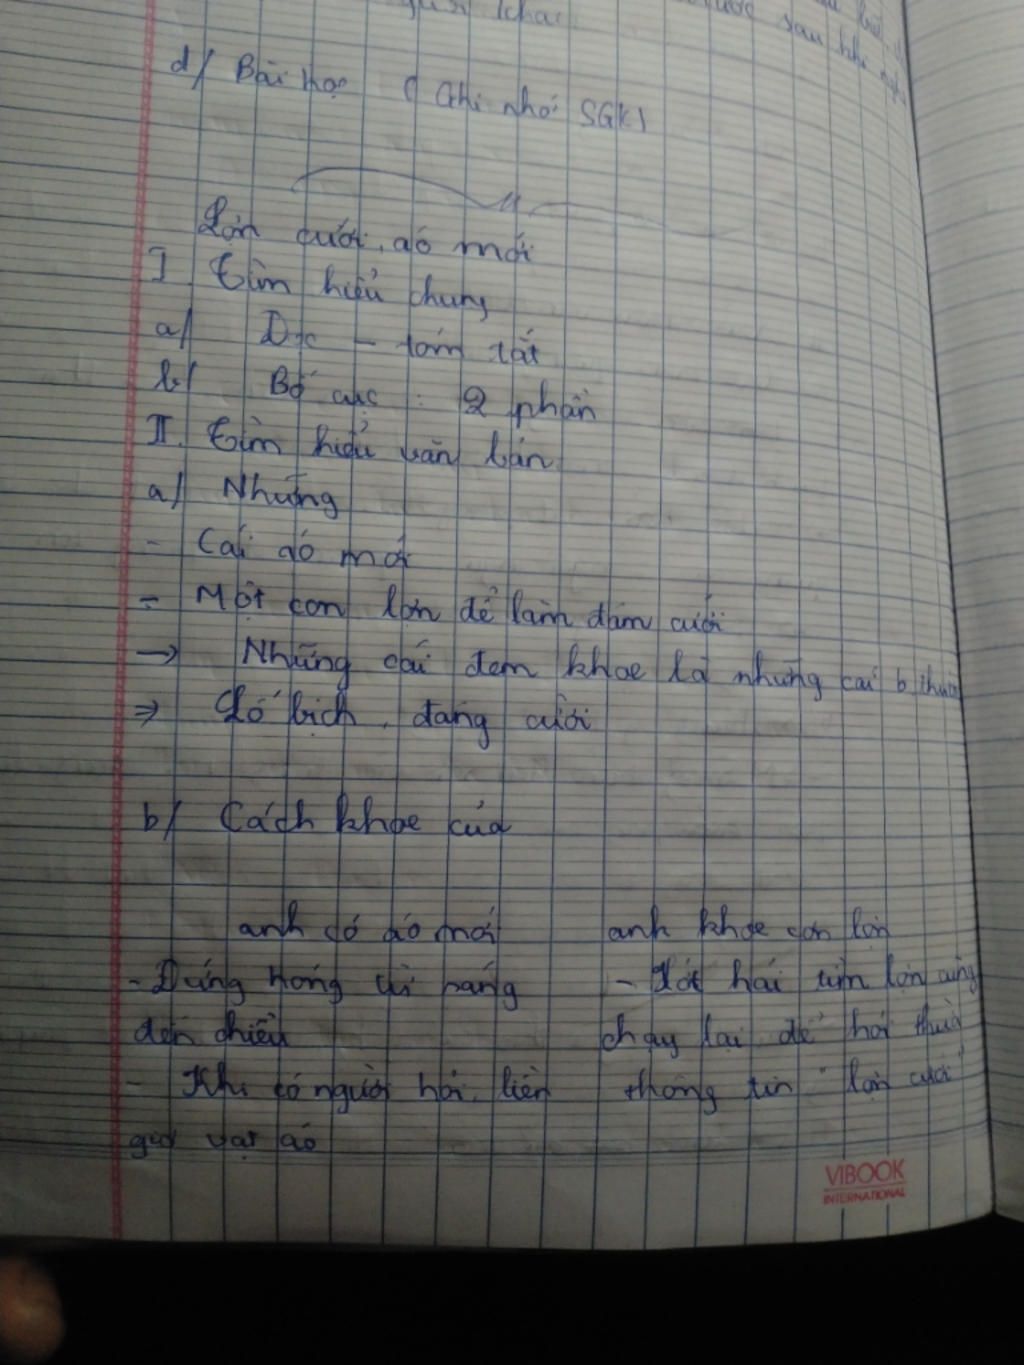 khác
sau khi
d/ Bài học ( Ghi nhớ SGK)
Lợn cưới, áo mới
I Tìm hiểu chung
a/ Đọc – tóm tắt
b/ Bố cục : 2 phần
II. Tìm hiểu văn bản
a/ Những
- Cái áo mới
- Một con lợn để làm đám cưới
→ Những cái đem khoe là những cái b thường
⇒ Lố bịch, đáng cười
b/ Cách khoe của
anh có áo mới anh khoe con lợn
- Đứng hóng từ sáng - Tất tưởi tìm lợn cũng
đến chiều chạy lại để hỏi thừa
- Khi có người hỏi, liền thông tin "lợn cưới"
giơ vạt áo
VIBOOK
INTERNATIONAL